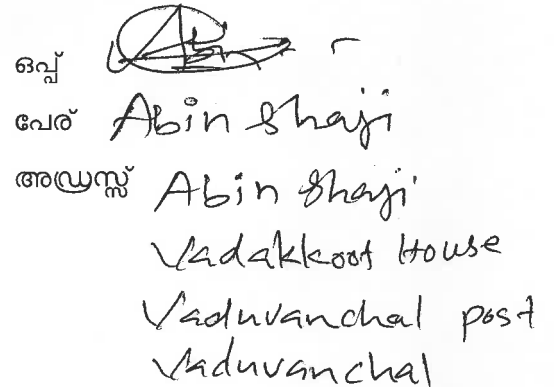 ഒപ്പ്
പേര് Abin Shaji
അഡ്രസ്സ് Abin Shaji
Vadakkoot House
Vaduvanchal post
Vaduvanchal